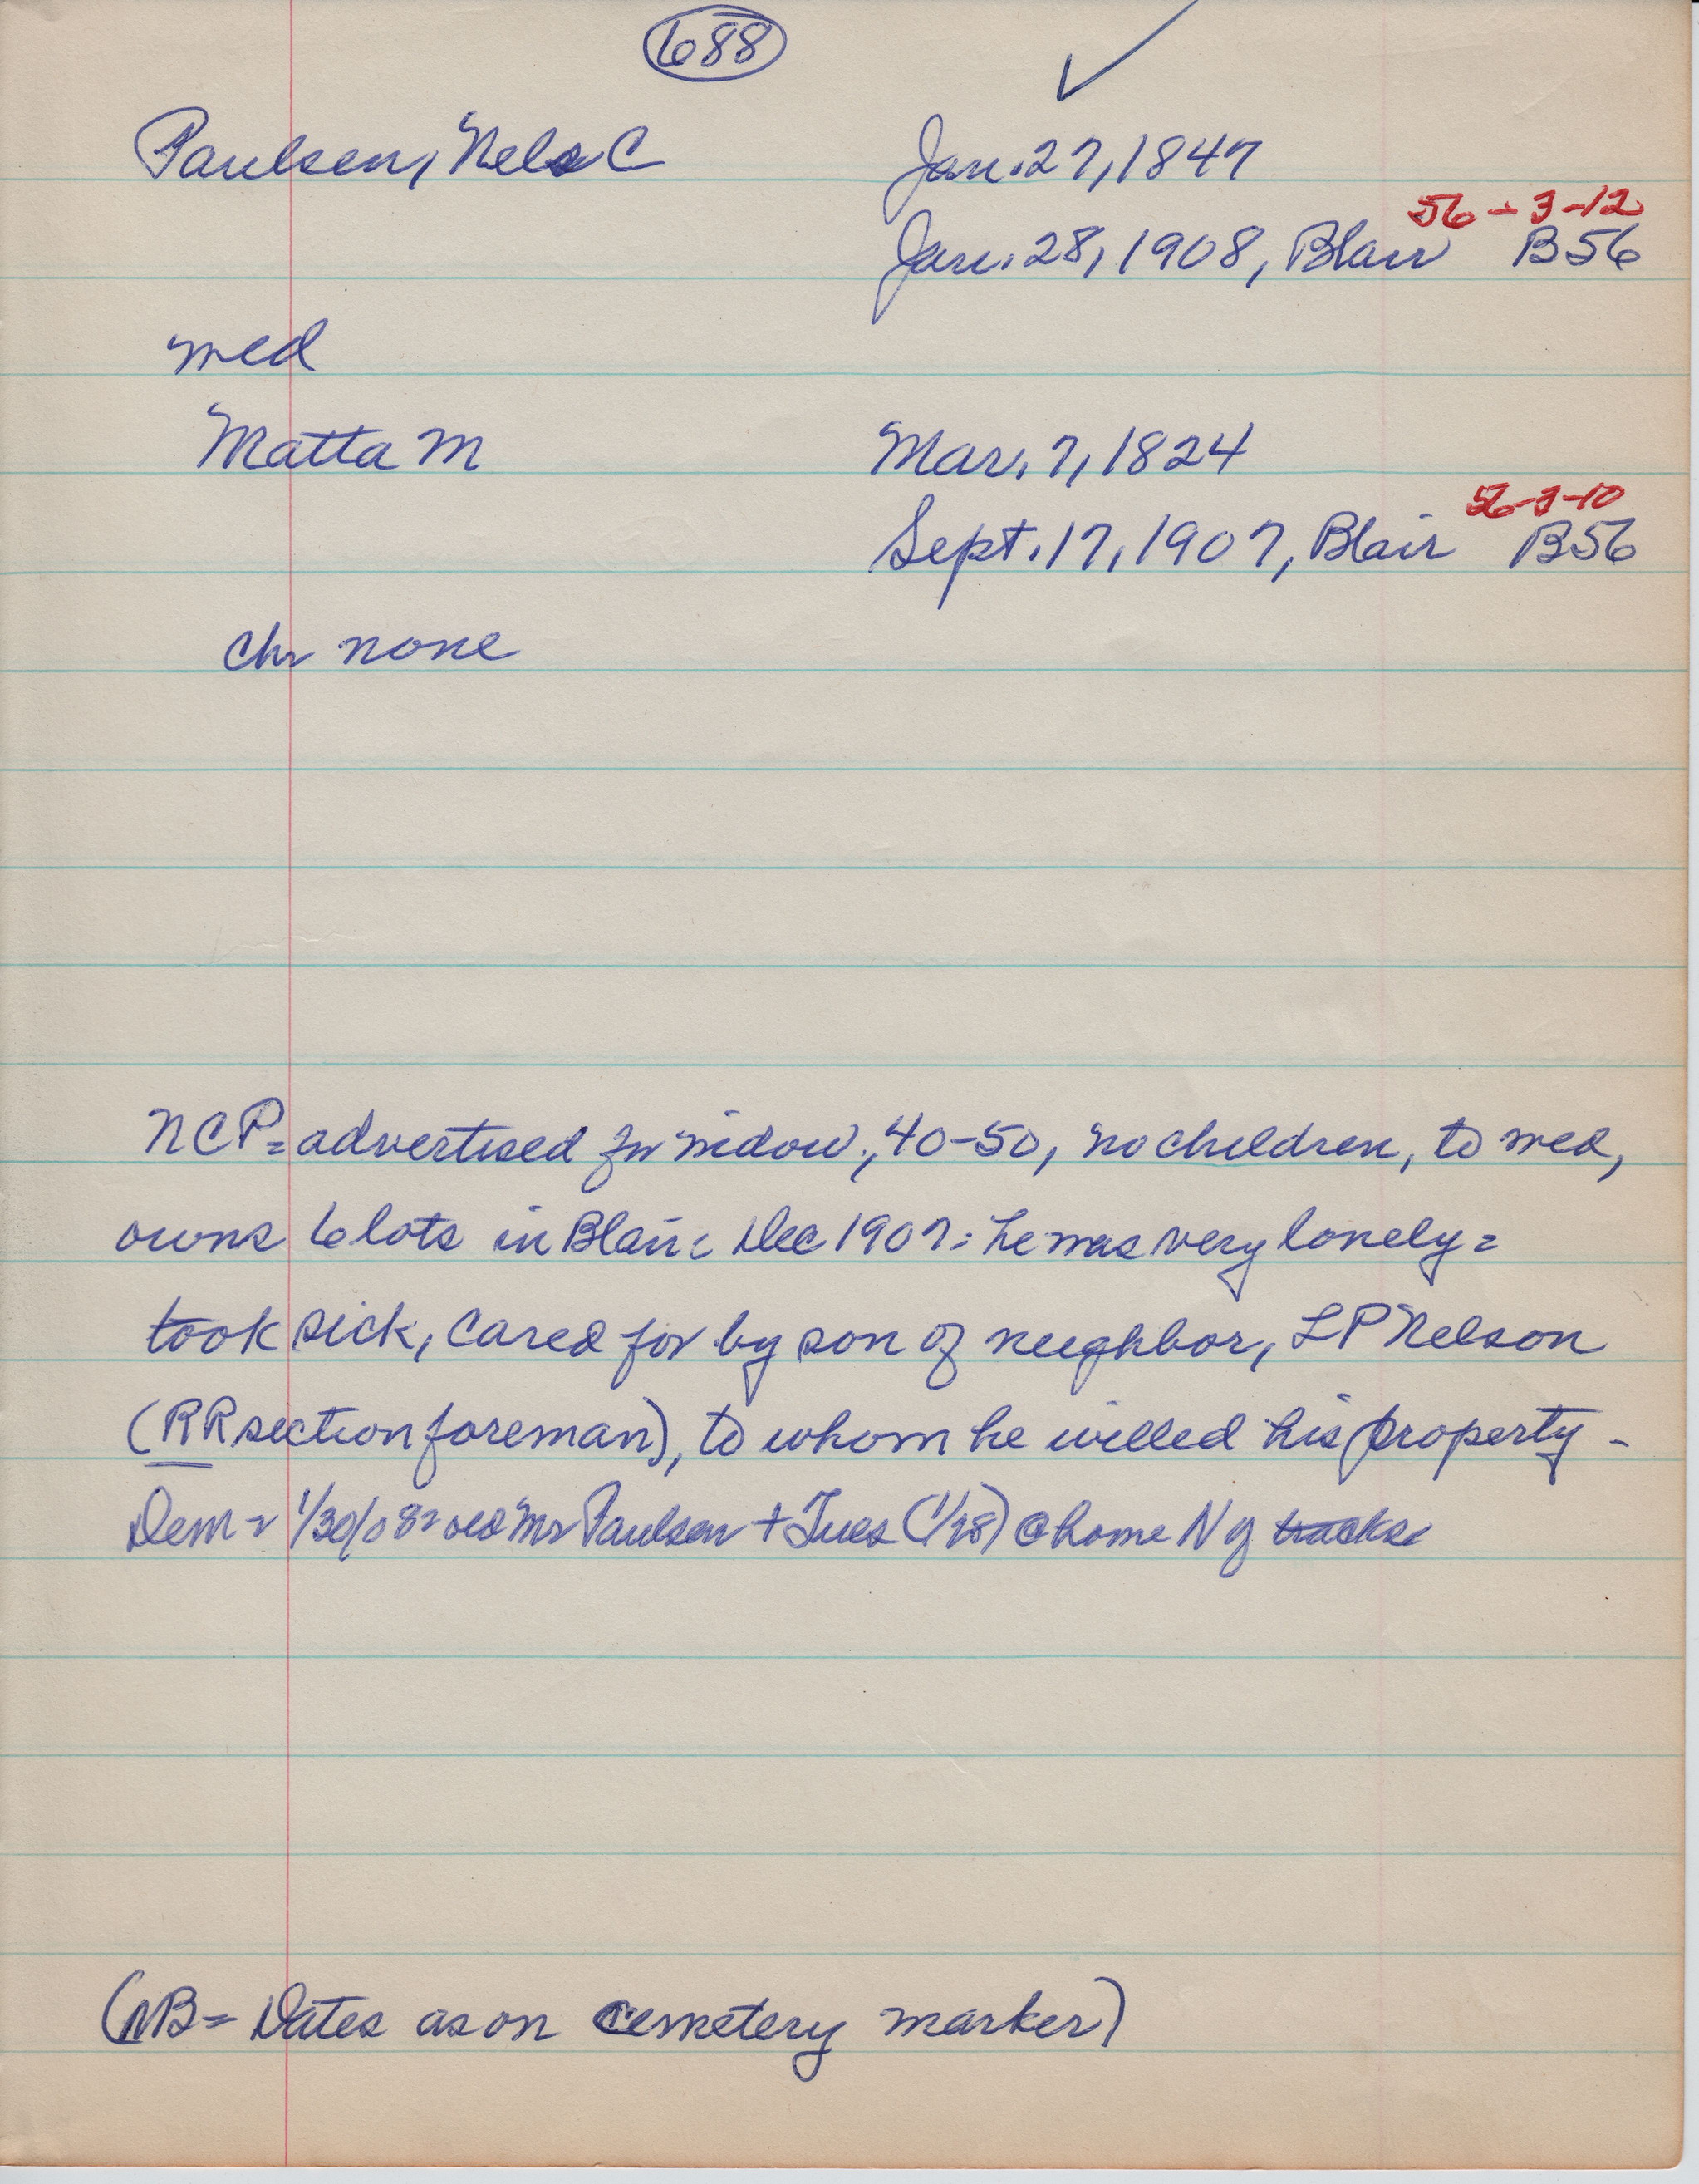 688
Paulsen, Nels C Jan. 27, 1847
56-3-12
Jan. 28, 1908, Blair B56
med
Matta M Mar. 7, 1824
56-3-10
Sept. 17, 1907, Blair B56
chr none
NCP= advertised for widow, 40-50, no children, to med,
owns 6 lots in Blair: Dec 1907: he was very lonely=
took sick, cared for by son of neighbor, LP Nelson
(RR section foreman), to whom he willed his property -
Dem= 1/30/08= old Mr Paulsen + Tues (1/28) @ home N of tracks
(NB= Dates as on cemetery marker)